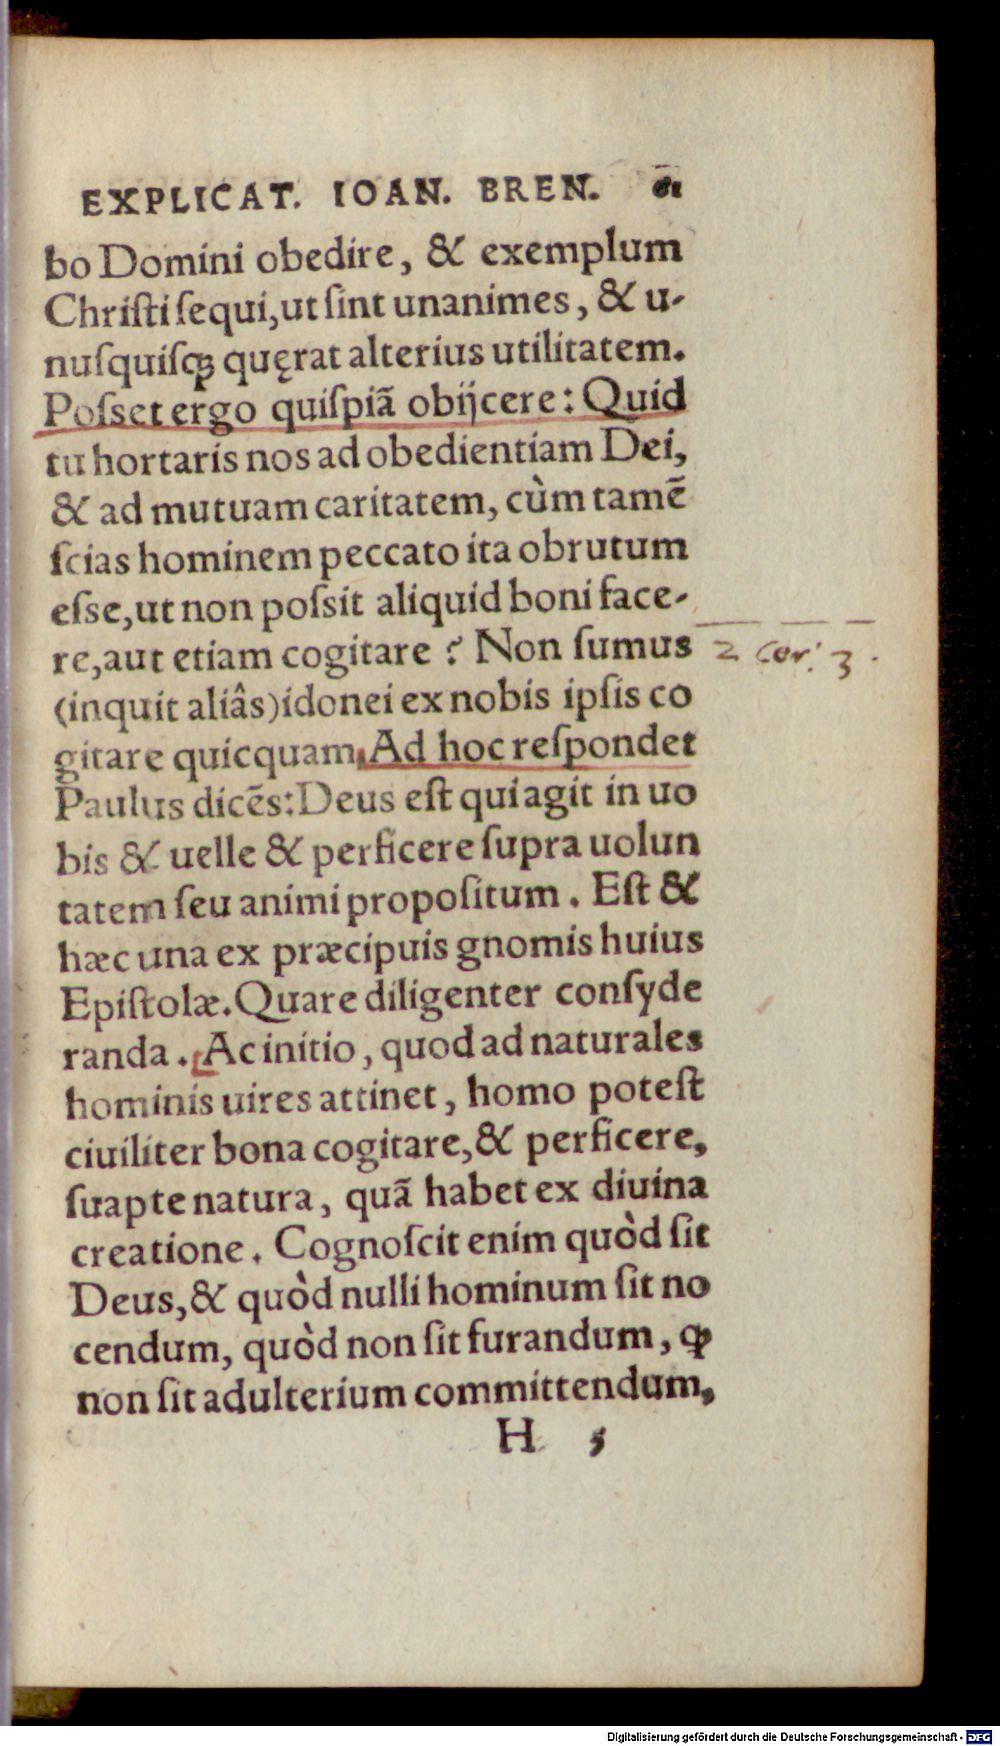 EXPLICAT. IOAN. BREN. 61
bo Domini obedire, & exemplum
Chriſti ſequi, ut ſint unanimes, & u-
nuſquiſq; quęrat alterius utilitatem.
Poſset ergo quiſpiã obijcere: Quid
tu hortaris nos ad obedientiam Dei,
& ad mutuam caritatem, cùm tamẽ
ſcias hominem peccato ita obrutum
eſse, ut non poſsit aliquid boni face-
re, aut etiam cogitare? Non ſumus
2 Cor. 3.
(inquit aliâs) idonei ex nobis ipſis co
gitare quicquam. Ad hoc reſpondet
Paulus dicẽs: Deus eſt qui agit in uo
bis & uelle & perficere ſupra uolun
tatem ſeu animi propoſitum. Eſt &
hæc una ex præcipuis gnomis huius
Epiſtolæ. Quare diligenter conſyde
randa. Ac initio, quod ad naturales
hominis uires attinet, homo poteſt
ciuiliter bona cogitare, & perficere,
ſuapte natura, quã habet ex diuina
creatione. Cognoſcit enim quòd ſit
Deus, & quòd nulli hominum ſit no
cendum, quòd non ſit furandum, ꝙ
non ſit adulterium committendum,
H 5
Digitalisierung gefördert durch die Deutsche Forschungsgemeinschaft - DFG